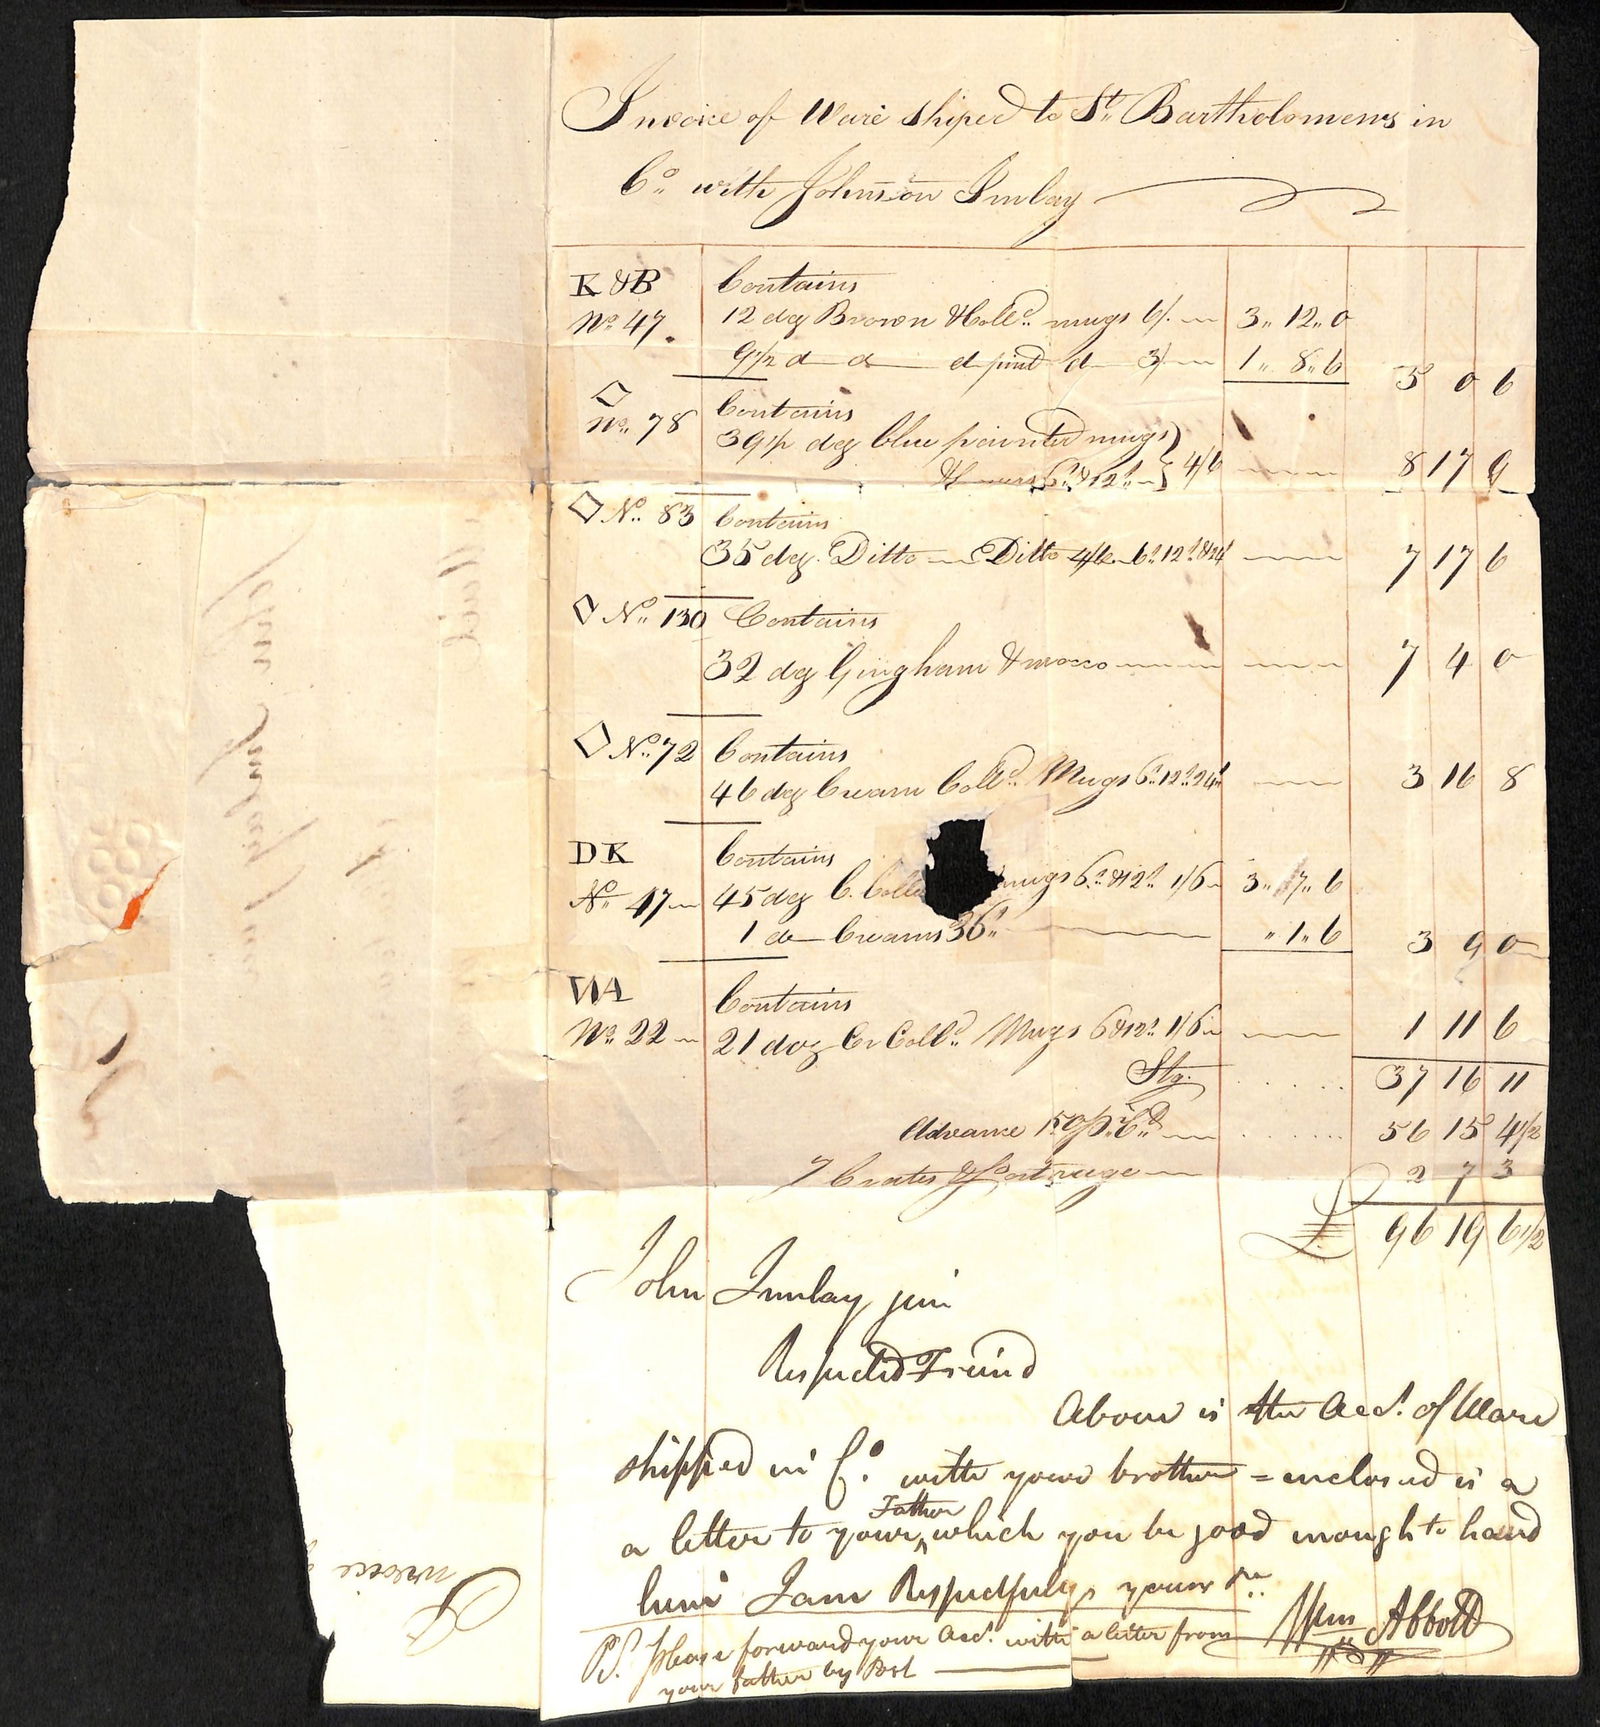 Invoice of Ware Shiped to St. Bartholomews in
Co. with Johnson Imlay
K&B Contains
No. 47. 12 doz Brown & Colld. mugs 6/. 3,, 12,, 0
9 1/2 d d d pint d 3/ 1,, 8,, 6 5 0 6
Contains
No. 78 39 1/2 doz blue painted mugs
6s & 12s } 4/6 8 17 9
No. 83 Contains
35 doz. Ditto Ditto 4/6 6s 12s & 24s 7 17 6
No. 130 Contains
32 doz Gingham & mocco 7 4 0
No. 72 Contains
46 doz Cream Colld. Mugs 6s 12s 24s 3 16 8
DK Contains
No. 47 45 doz C. Coll mugs 6s & 12s 1/6 3,, 7,, 6
1 do Creams 36s ,, 1,, 6 3 9 0
WA Contains
No. 22 21 doz Cr Colld. Mugs 6 & 12s 1/6 1 11 6
Stg. 37 16 11
Advance 150 p. Ct. 56 15 4 1/2
7 Crates & Portrage 2 7 3
£ 96 19 6 1/2
John Imlay jun
Respected Freind
Above is the Acct. of Ware
shipped in Co. with your brother = enclosed is a
Father
a letter to your ^ which you be good enough to hand
him I am Respectfuly your
Wm Abbott
P.S. please forward your Acct. with a letter from
your father by Post
Invoice